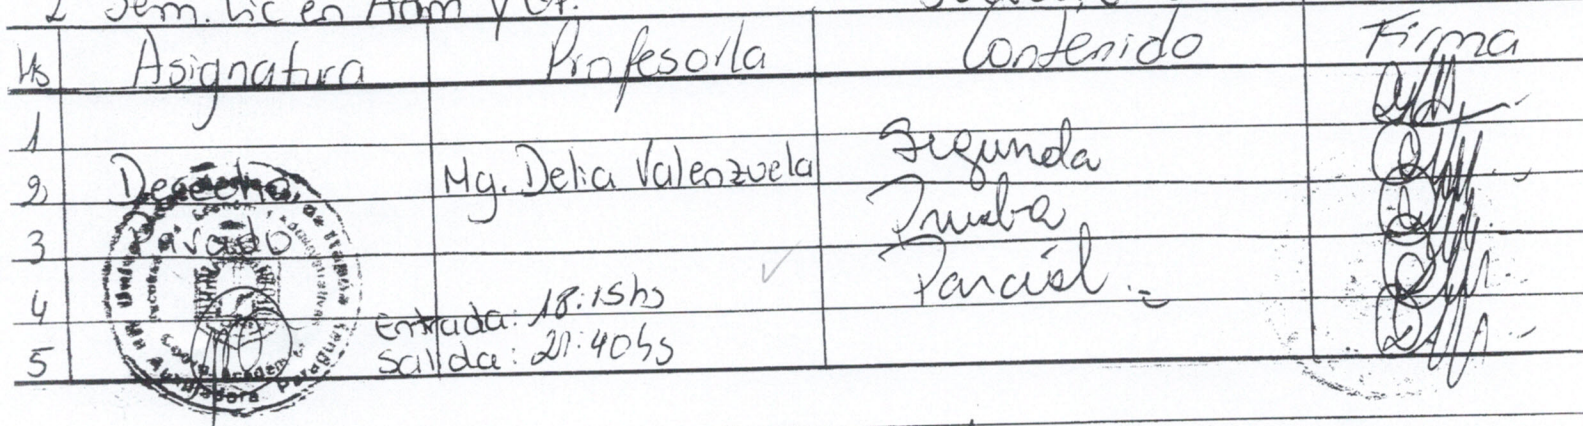 2 Sem. Lic en Adm y
Hs Asignatura Profesor/a Contenido Firma
1
2 Derecho Mg. Delia Valenzuela Segunda
Prueba
3 Privado
Parcial.
4 Entrada: 18:15hs
5 Salida: 21:40hs